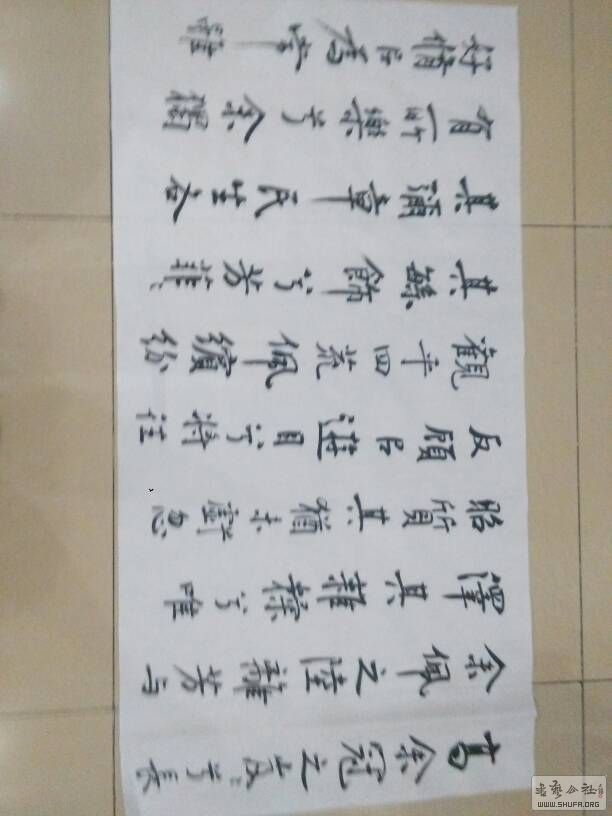 高余冠之岌々兮長
余佩之陸離芳与
澤其雜糅兮唯
昭質其猶未虧忽
反顧㠯遊目兮將往
觀乎四荒佩繽紛
其繁飾兮芳菲々
其彌章民生各
有所樂兮余獨
好脩㠯為常雖
书艺公社
WWW.SHUFA.ORG